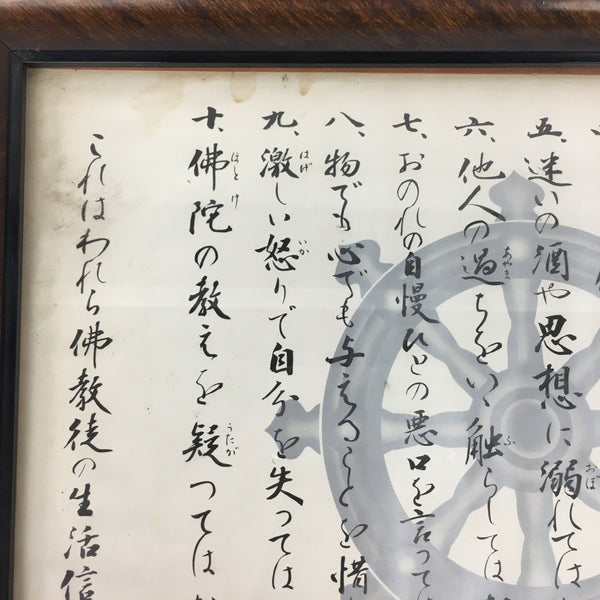 五、迷いの酒や思想に溺れては
六、他人の過ちをいゝ触らしては
七、おのれの自慢ひとの悪口を言っては
八、物でも心でも与えることを惜
九、激しい怒りで自分を失っては
十、佛陀の教えを疑つては
これはわれら佛教徒の生活信